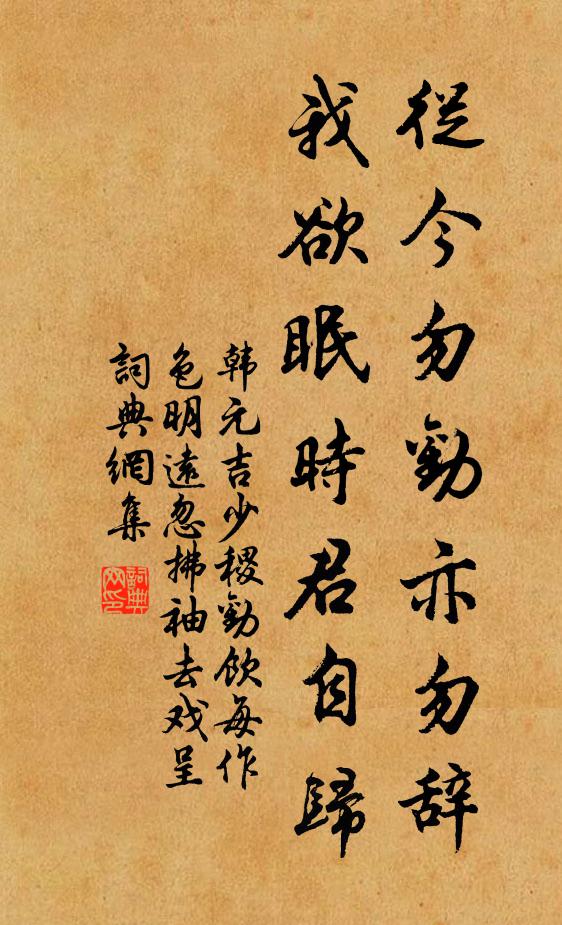 從今勿勸亦勿辞
我欲眠時君自歸
韩元吉少稷勸飲每作
色明遠忽拂袖去戏呈
詞典網集
詞典
网印